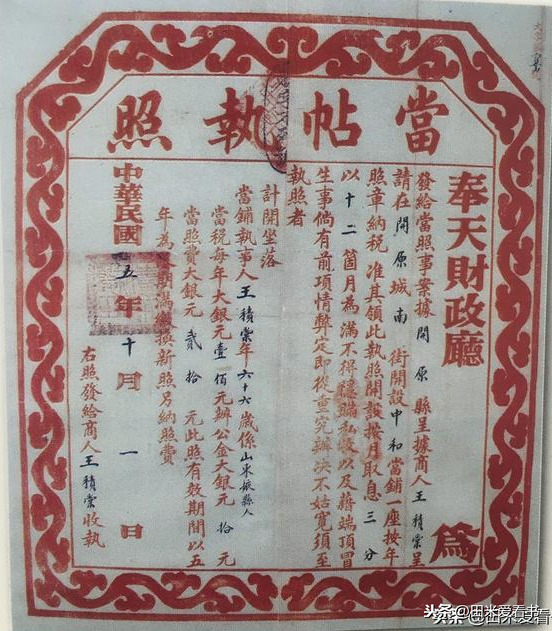 當帖執照
奉天財政廳
為
發給當照事案據開原縣呈據商人王積棠呈
請在開原城南街開設中和當鋪一座按年
照章納稅准其領此執照開設按月取息三分
以十二箇月為滿不得隱瞞私收以及藉端頂冒
生事倘有前項情弊定即從重究辦決不姑寬須至
執照者
計開坐落
當鋪執事人王積棠年六十六歲係山東 縣人
當稅每年大銀元壹佰元辦公金大銀元拾元
當照費大銀元貳拾元此照有效期間以五
年為 期滿繳換新照另納照費
中華民國 五年十月一日
右照發給商人王積棠收執
头条@田米爱看书
头条 @田米爱看